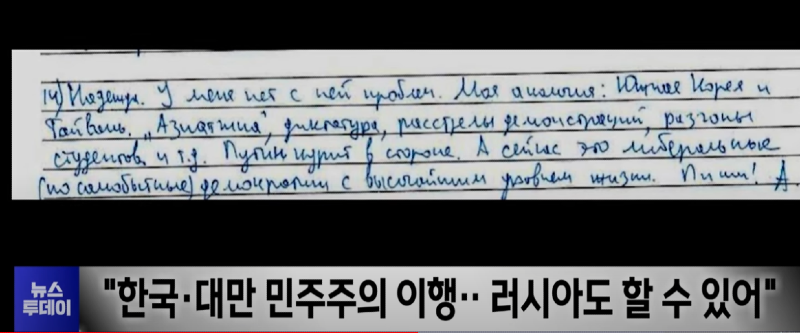 14) Надежда. У меня нет с ней проблем. Моя аналогия: Южная Корея и
Тайвань. „Азиатчина", диктатура, расстрелы демонстраций, разгоны
студентов и т.д. Путин курит в стороне. А сейчас это либеральные
(но самобытные) демократии с высочайшим уровнем жизни. Пиши! А.
뉴스
투데이
"한국·대만 민주주의 이행‥ 러시아도 할 수 있어"